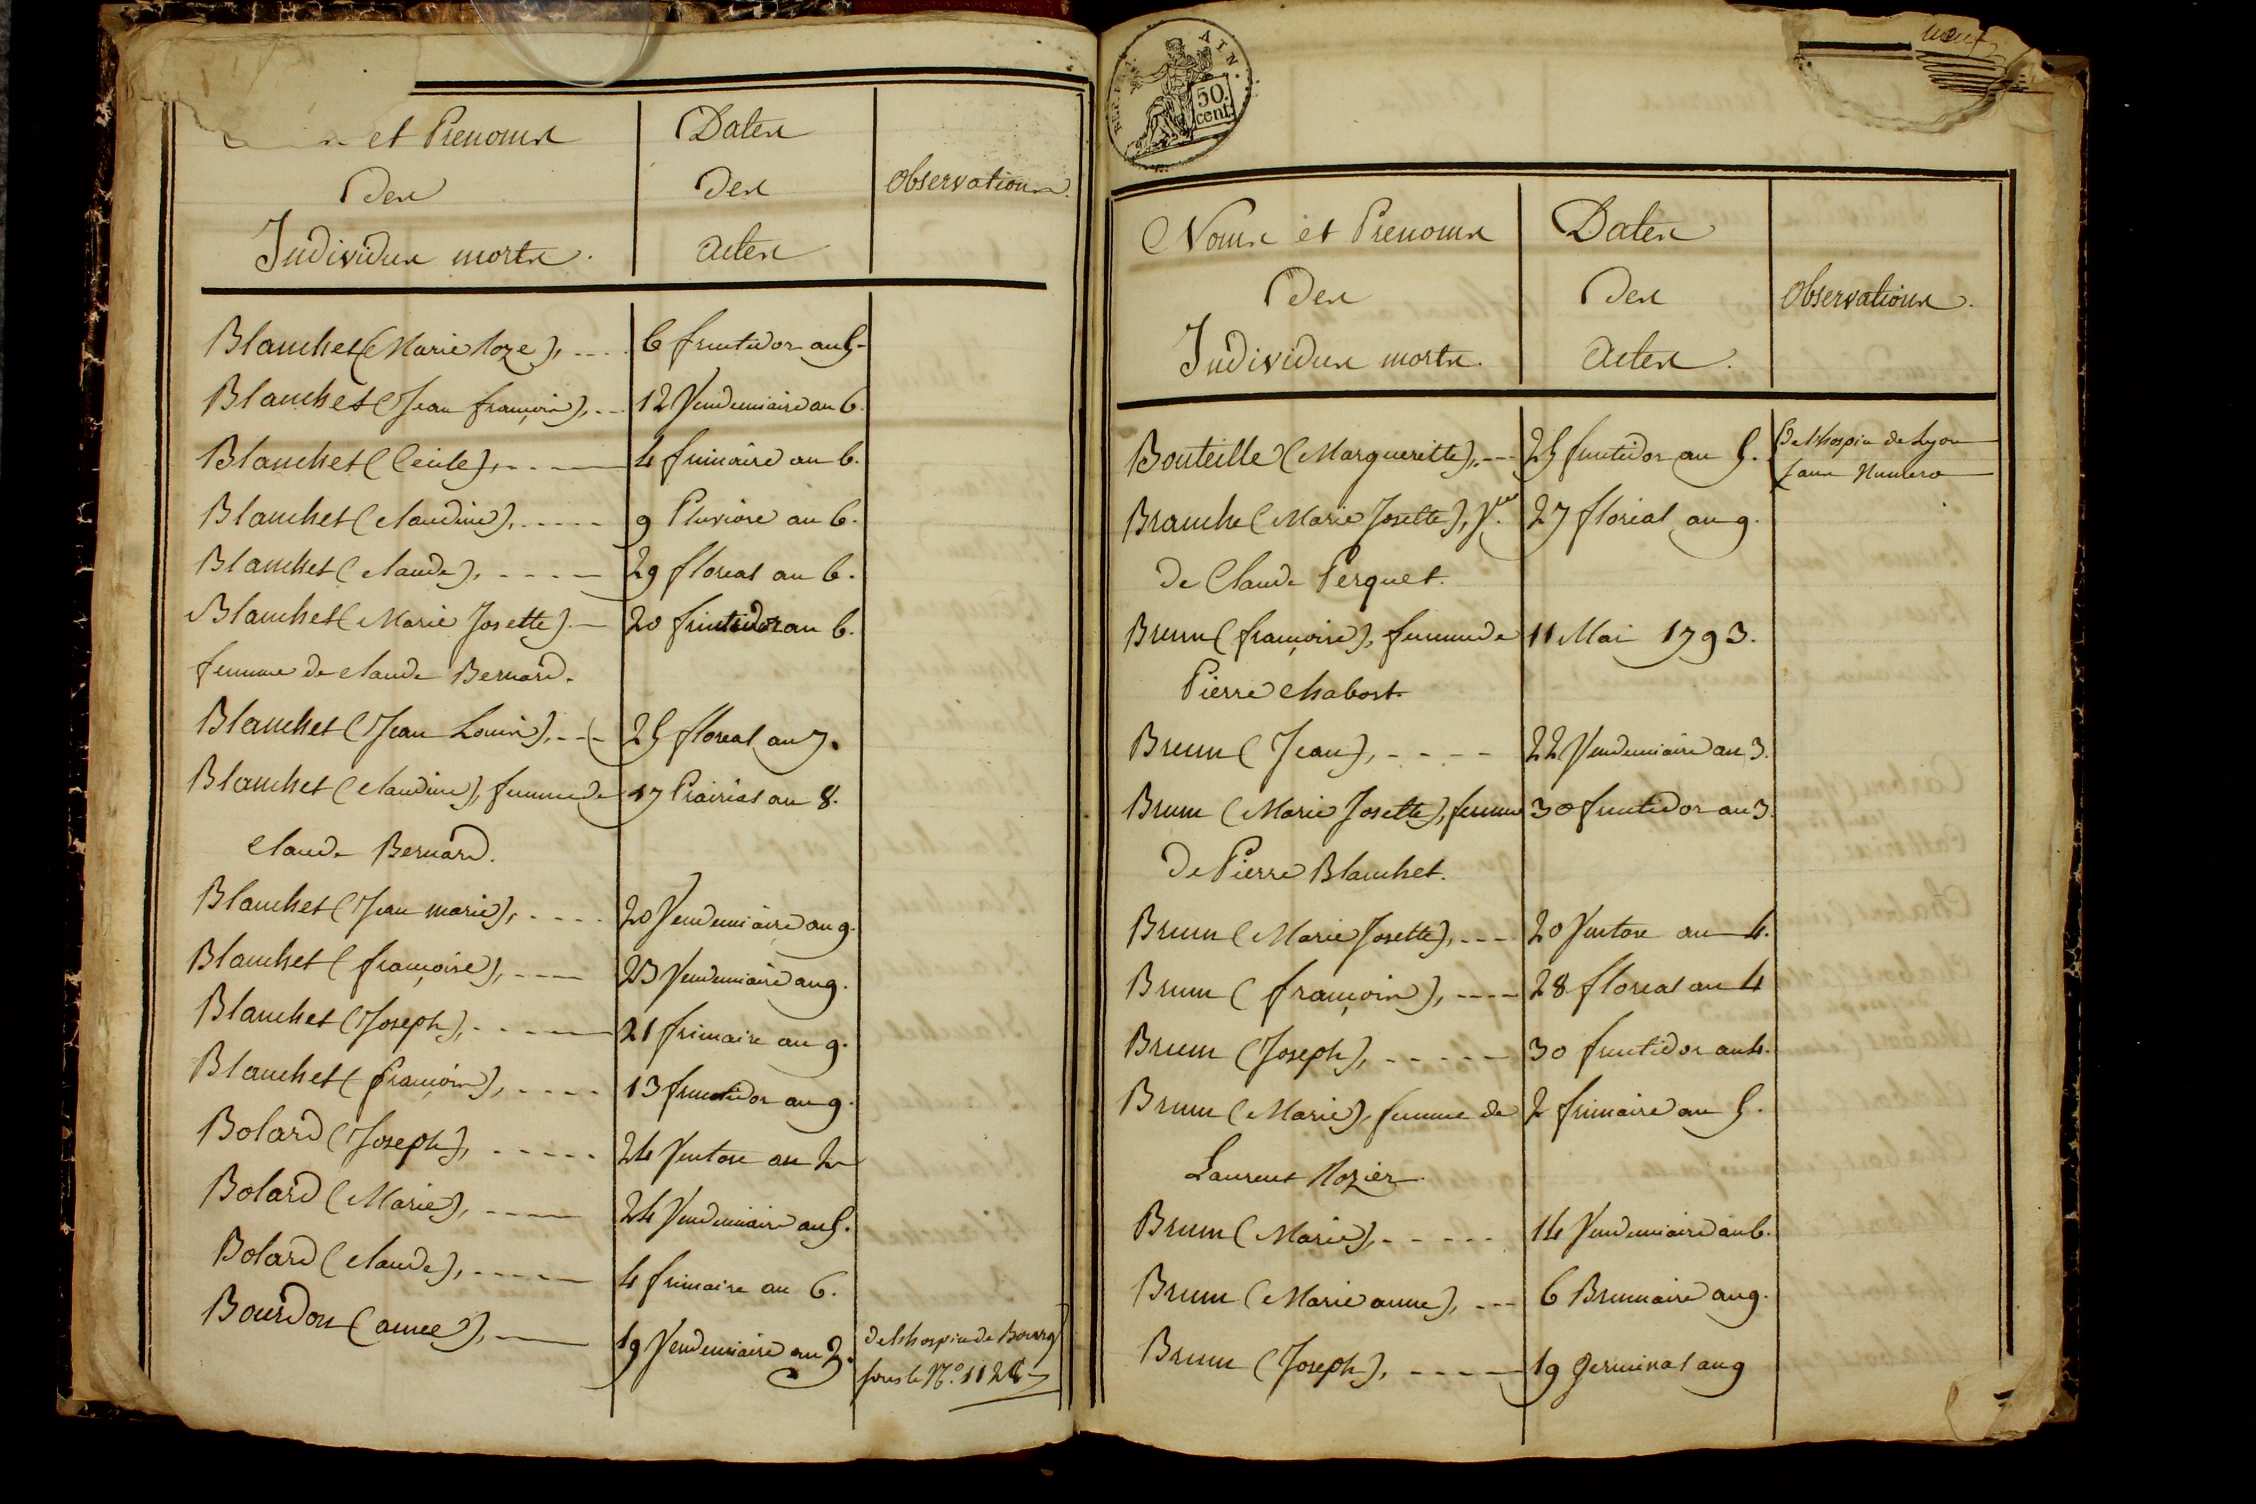 et Prenoms
Des
Individus morts.
Dates
Des
Actes
Observations.
Blanchet (Marie Roze), 6 fructidor an 5.
Blanchet (Jean françois), 12 Vendemiaire an 6.
Blanchet (Cecile), 4 frimaire an 6.
Blanchet (Claudine), 9 Pluviose an 6.
Blanchet (Claude), 29 floreal an 6.
Blanchet (Marie Josette) 20 fructidor an 6.
femme de Claude Bernard.
Blanchet (Jean Louis), 25 floreal an 7.
Blanchet (Claudine), femme de 17 Prairial an 8.
Claude Bernard.
Blanchet (Jean marie), 20 Vendemiaire an 9.
Blanchet (françoise), 23 Vendemiaire an 9.
Blanchet (Joseph), 21 frimaire an 9.
Blanchet (françois), 13 fructidor an 9.
Bolard (Joseph), 24 Ventose an 2
Bolard (Marie), 24 Vendemiaire an 5.
Bolard (Claude), 4 frimaire an 6.
Bourdon (aimée), 19 Vendemiaire an 3. de l'hospice de Bourg
sous le N.° 1128
AIN.
50.
cent.
neuf
Noms et Prenoms
Des
Individus morts.
Dates
Des
Actes.
Observations.
Bouteille (Margueritte), 25 fructidor an 5. De l'hospice de Lyon
sans Numero
Branche (Marie Josette), Vve. 27 floreal an 9.
de Claude Perquet.
Brun (françoise), femme de 11 Mai 1793.
Pierre Chabost.
Brun (Jean), 22 Vendemiaire an 3.
Brun (Marie Josette), femme 30 fructidor an 3.
de Pierre Blanchet.
Brun (Marie Josette), 20 Ventose an 4.
Brun (françois), 28 floreal an 4
Brun (Joseph), 30 fructidor an 4.
Brun (Marie), femme de 2 frimaire an 5.
Laurent Rozier
Brun (Marie), 14 Vendemiaire an 6.
Brun (Marie anne), 6 Brumaire an 9.
Brun (Joseph), 19 Germinal an 9